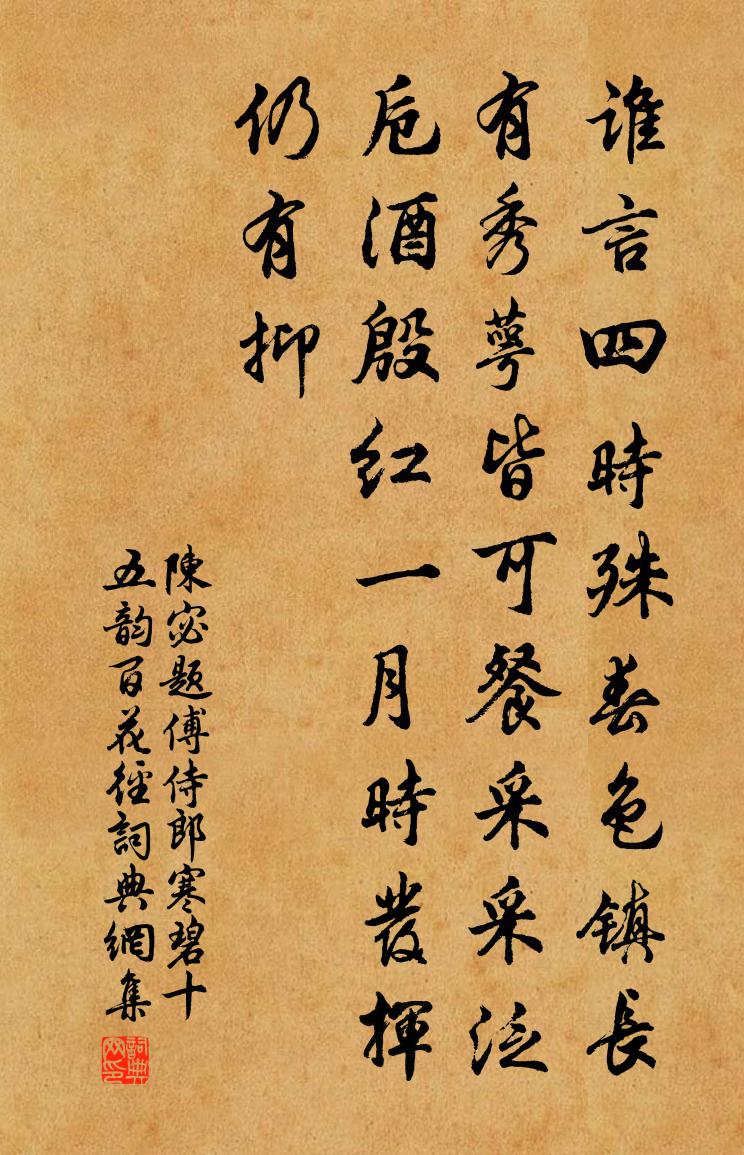 谁言四時殊春色镇長
有秀萼皆可餐采采泛
卮酒殷红一月時發揮
仍有抑
陳宓题傅侍郎寒碧十
五韵百花徑詞典網集
詞典网印